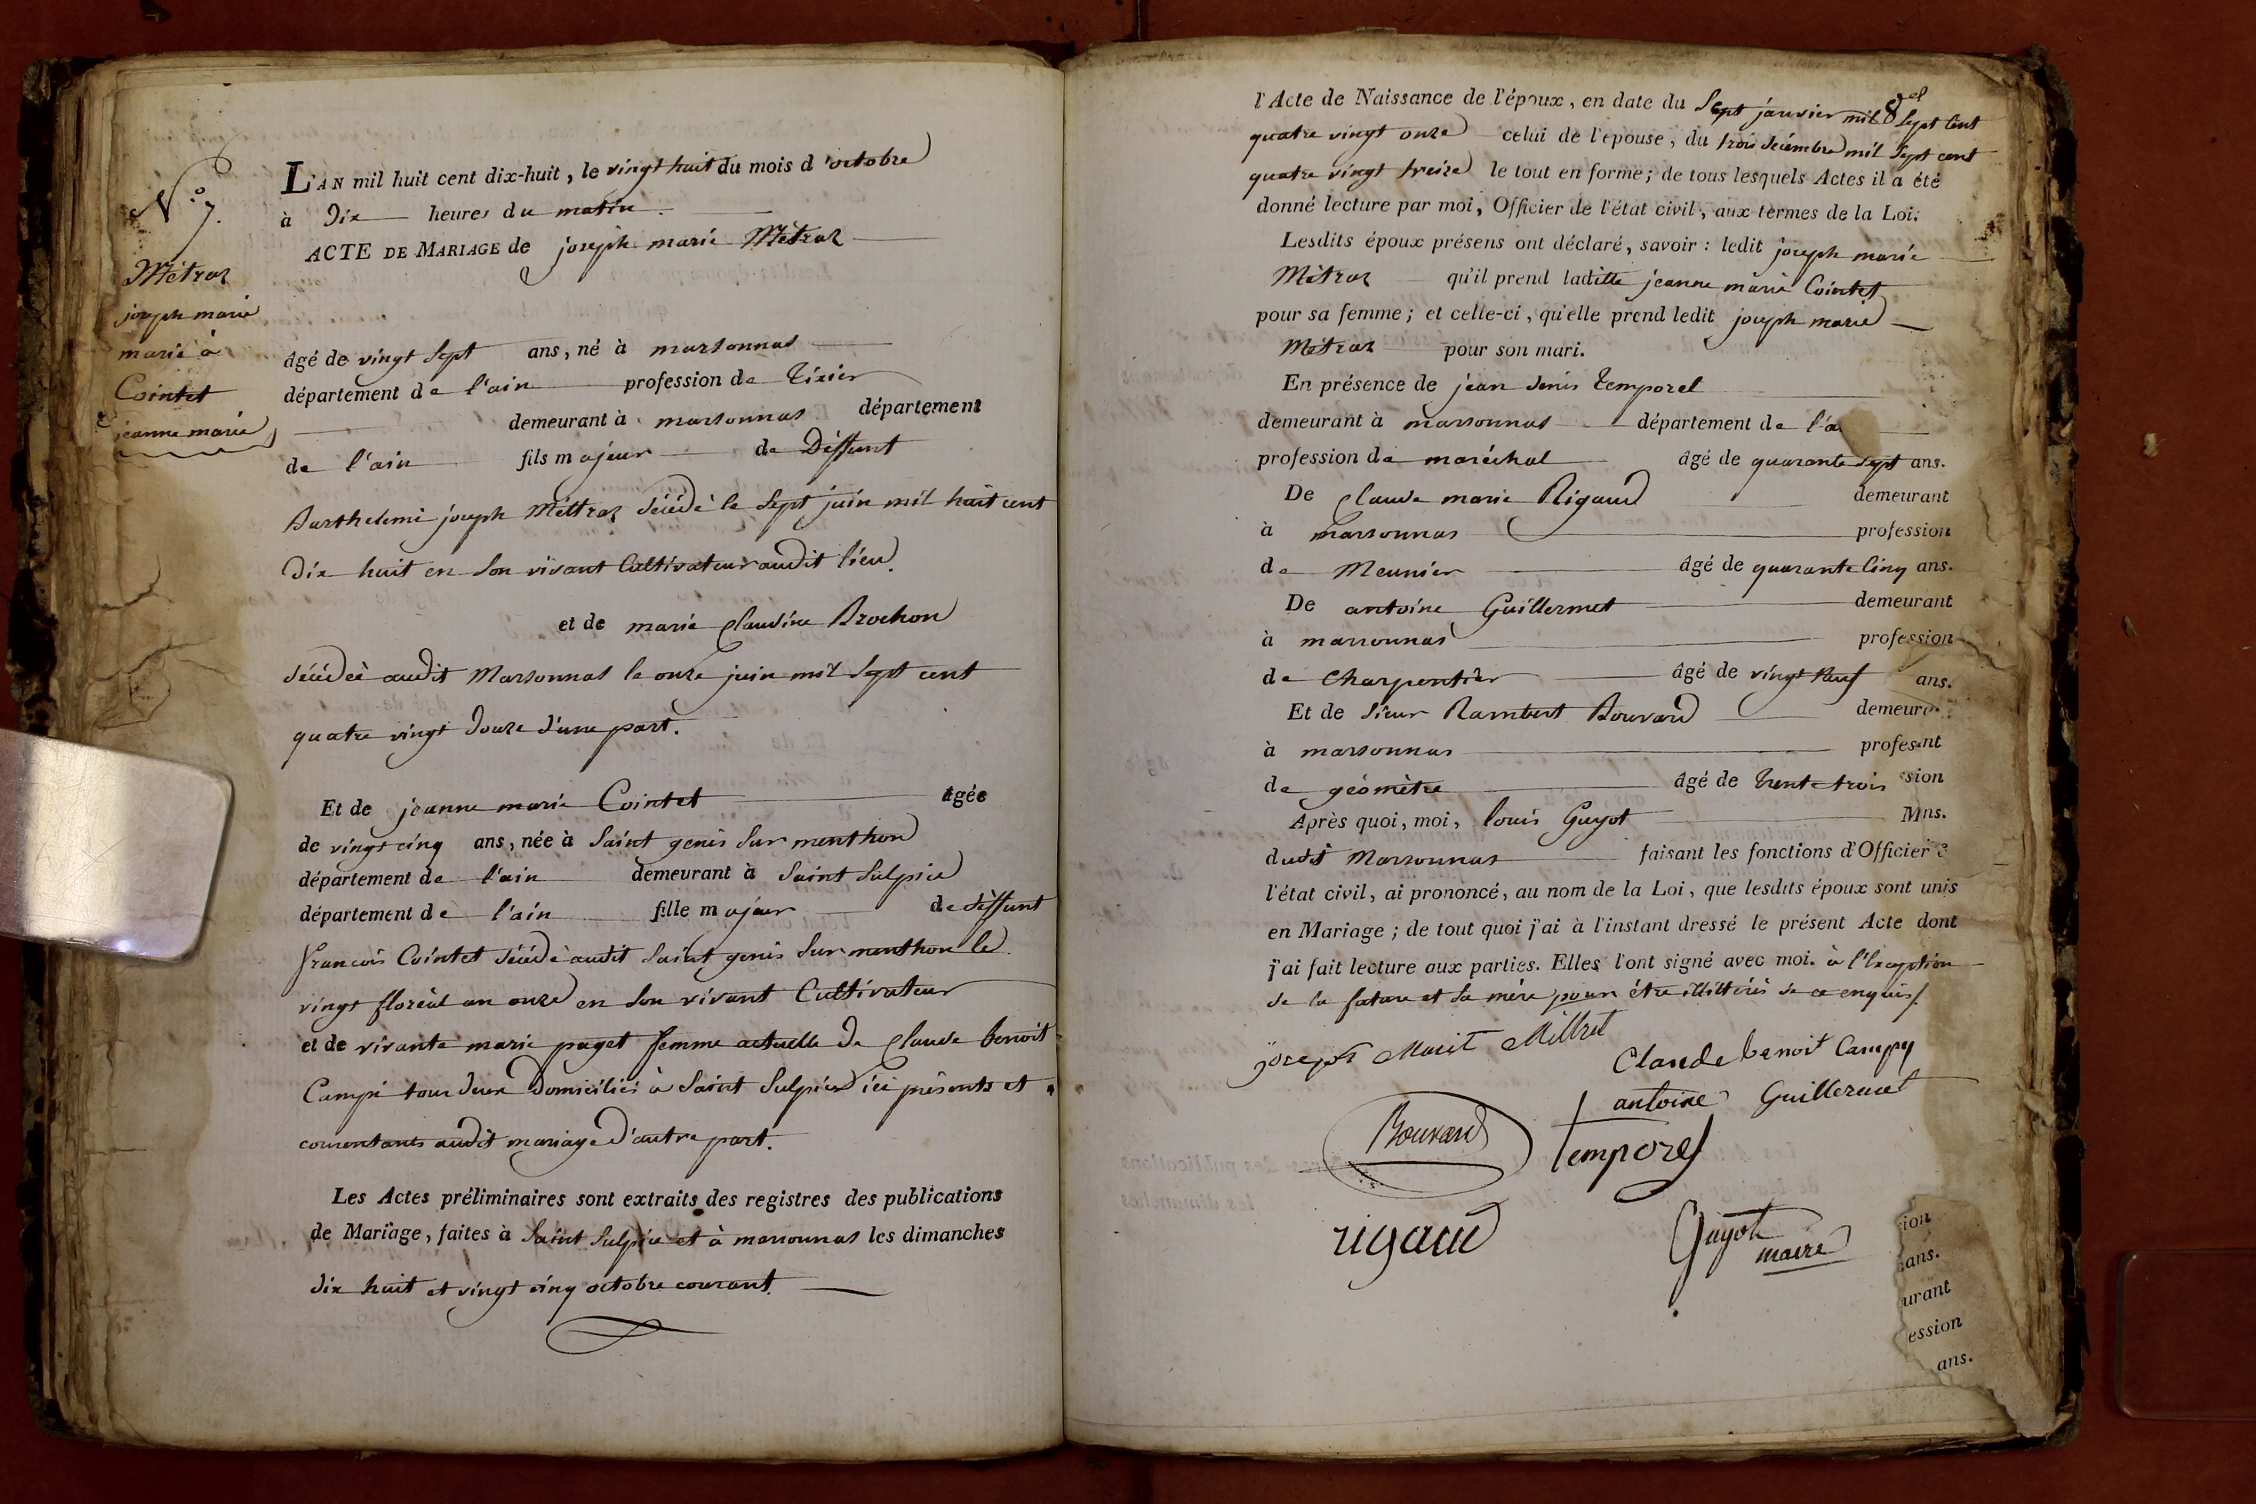 N.° 7.
Métraz
joseph marie
marié à
Cointet
jeanne marie
L'AN mil huit cent dix-huit, le vingt huit du mois d'octobre
à Dix heures du matin.
ACTE DE MARIAGE de joseph marie Métraz
âgé de vingt sept ans, né à marsonnas
département de l'ain profession de Tixier
demeurant à marsonnas département
de l'ain fils majeur de Deffunt
Barthelemi joseph Mettraz décédé le Sept juin mil huit cent
Dix huit en Son vivant Cultivateur audit lieu.
et de marie Claudine Brochon
décédée audit Marsonnas le onze juin mil Sept cent
quatre vingt douze d'une part.
Et de jeanne marie Cointet âgée
de vingt cinq ans, née à Saint genis Sur menthon
département de l'ain demeurant à Saint Sulpice
département de l'ain fille majeur de deffunt
francois Cointet décédé audit Saint genis Sur menthon le
vingt floréal an onze en Son vivant Cultivateur
et de vivante marie paget femme actuelle de Claude benoit
Campi tous deux Domiciliés à Saint Sulpice ici présents et
consentants audit mariage d'autre part.
Les Actes préliminaires sont extraits des registres des publications
de Mariage, faites à Saint Sulpice et à marsonnas les dimanches
dix huit et vingt cinq octobre courant.
l'Acte de Naissance de l'époux, en date du Sept janvier mil Sept Cent
quatre vingt onze celui de l'epouse, du trois décembre mil Sept cent
quatre vingt treize le tout en forme; de tous lesquels Actes il a été
donné lecture par moi, Officier de l'état civil, aux termes de la Loi.
Lesdits époux présens ont déclaré, savoir : ledit joseph marie
Métraz qu'il prend laditte jeanne marie Cointet
pour sa femme; et celle-ci, qu'elle prend ledit joseph marie
Métraz pour son mari.
En présence de jean denis Temporel
demeurant à marsonnas département de l'a
profession de maréchal âgé de quarante Sept ans.
De Claude marie Rigaud demeurant
à marsonnas profession
de Meunier âgé de quarante Cinq ans.
De antoine Guillermet demeurant
à marsonnas profession
de Charpentier âgé de vingt Neuf ans.
Et de Sieur Rambert Bouvard demeur
à marsonnas profes nt
de géomètre âgé de Trente trois sion
Après quoi, moi, louis Guyot M ns.
dudit Marsonnas faisant les fonctions d'Officier
l'état civil, ai prononcé, au nom de la Loi, que lesdits époux sont unis
en Mariage; de tout quoi j'ai à l'instant dressé le présent Acte dont
j'ai fait lecture aux parties. Elles l'ont signé avec moi. à l'Exception
de la future et Sa mère pour être illittérés de ce enquis.
Claude benoit Campy
antoine Guillermet
Bouvard
Temporel
rigaud
Guyot
maire
ion
ans.
urant
ession
ans.